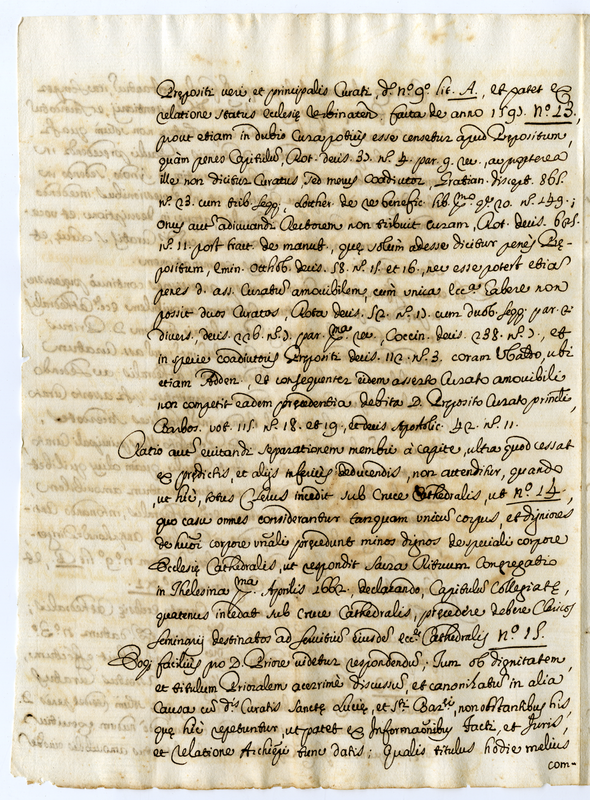 Prepositi veri, et principalis Curati, d.º nº 9º lit. A., et patet ex
relatione status eclesię Urbinaten: facta de anno 1593. nº 13,
prout etiam in dubio Cura potius esse censetur apud Prepositum,
quàm penes Capitulũ, Rot. decis. 33. nº 4. par. 9. rec., ac propterea
ille non dicitur Curatus, sed merus Coadiutor, Gratian. discept. 865.
nº 23. cum trib. seqq., Lother. de re benefic. lib. 20. nº 149.;
Onus aut adiuvandi Rectorem non tribuit curam, Rot. decis. 625.
nº 11. post tract. de manut., quę solùm adesse dicitur penes Pre-
positum, Emin. Otthob. decis. 58. nº 15. et 16., nec esse potest etiã
penes d. ass. Curatũ amovibilem, cùm unica Ecc.ª habere non
possit duos Curatos, Rota decis. 52. nº 13. cum duob. seqq. par. 2.
divers., decis. 226. nº 3. par. rec., Coccin. decis. 238. nº 3., et
in specie Coadiutoris Prepositi decis. 112. nº 3. coram Ubaldo, ubi
etiam Adden., et consequenter eidem asserto Curato amovibili
non competit eadem precedentia debita D. Preposito Curato princ̃li,
Barbos. vot. 115. nº 18. et 19., et decis. Apostolic. 42. nº 11.
Ratio aut evitandi separationem membri à capite, ultra quod cessat
ex predictis, et alijs inferiùs deducendis, non attenditur, quando
ut hic, totus Clerus incedit sub Cruce Cathedralis, ut nº 14,
quo casu omnes considerantur tanquam unicũ corpus, et digniores
de corpore precedunt minus dignos de speciali corpore
Ecclesię Cathedralis, ut respondit Sacra Rituum Congregatio
in Thelesina Aprilis 1662. declarando, Capitulũ Collegiatę,
quatenus incedat sub Cruce Cathedralis, precedere debere Clericos
seminarij destinatos ad servitiũ eiusdẽ ecc.ę Cathedralis nº 15.
Eoq; faciliùs pro D. Priore videtur respondendũ; Tum ob dignitatem,
et titulum Prioralem acerrimè discussũ, et canonizatũ in alia
Causa cũ d.is Curatis Sanctę Lucię, et S.ti Bar.ei, non obstantibus his,
quę hic repetuntur, ut patet ex Informaõnibus facti, et Juris,
et relatione tunc datis; qualis titulus hodie meliùs
com-